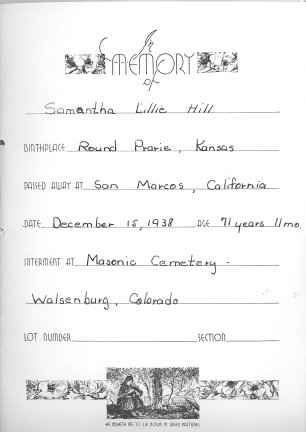 In
MEMORY
of
Samantha Lillie Hill
BIRTHPLACE Round Prarie, Kansas
PASSED AWAY AT San Marcos, California
DATE December 15, 1938 AGE 71 years 11 mo.
INTERMENT AT Masonic Cemetery -
Walsenburg, Colorado
LOT NUMBER SECTION
HE MAKETH ME TO LIE DOWN IN GREEN PASTURES